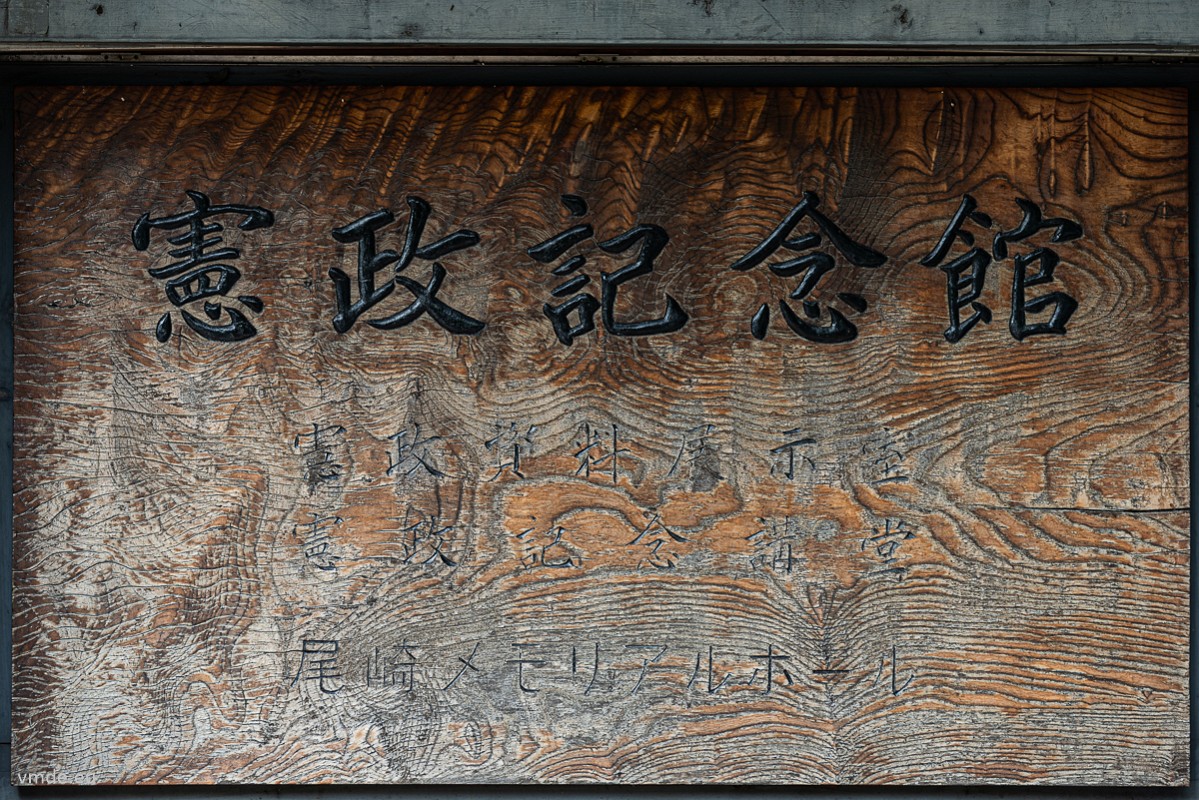 憲政記念館
憲政資料展示室
憲政記念講堂
尾崎メモリアルホール
vmde.eu